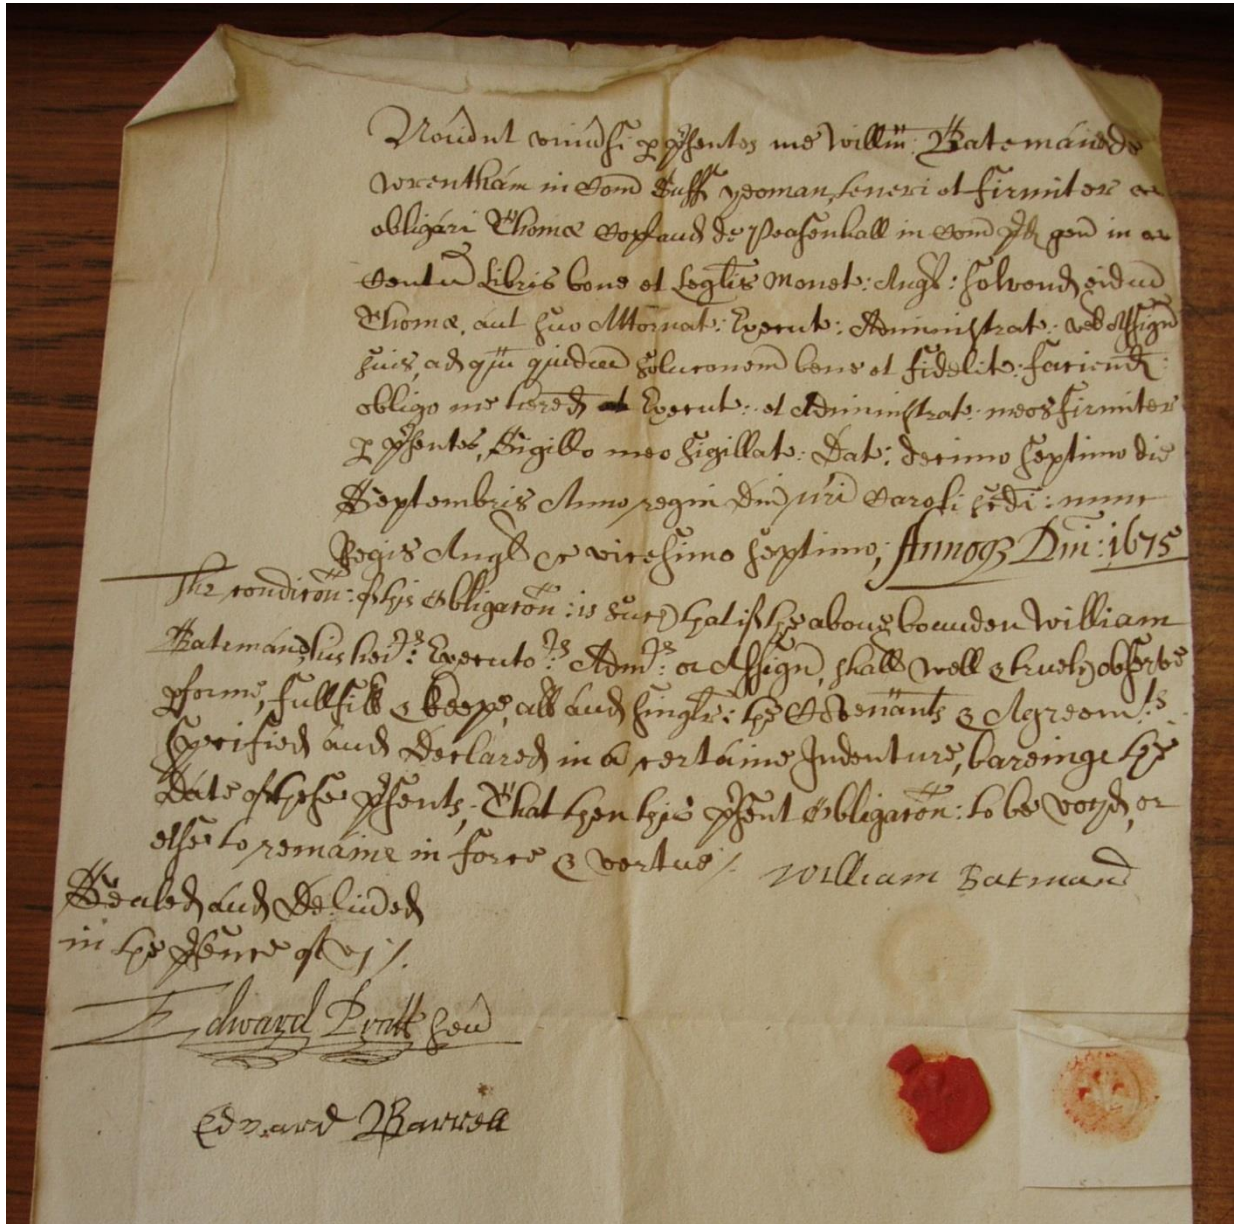 Noũint universi p p̃sentes me Willm̃: Batemand de
Wrentham in Com̃ Suff yeoman, teneri et firmiter
obligari Thomæ Copland de Peasenhall in Com̃ p̃d gen̄ in
Centũ Libris bone et Leglis Monet: Angl: solvend eidem
Thomæ, aut suo Attornat: Execut: Administrate: vel Assign̄
suis, ad qũ quidem soluconem bene et fidelit: faciend:
obligo me hered et Execut: et Administrate: meos firmiter
p p̃sentes, Sigillo meo Sigillate: Dat: decimo septimo die
Septembris Anno regni Dn̄i nr̄i Caroli scdi: nunc
Regis Angl &c vicesimo septimo; Annoq Dm̄: 1675
The condicõn: of this Obligacõn: is such that if the above bounden William
Batemand, his heirs: Executors: Admrs: or Assign, shall well & truely observe
pforme, fullfill & keepe, all and singlr: the Covenants & Agreemts:
specified and Declared in a certaine Indenture, bareinge the
Date of these p̃sents, That then this p̃sent Obligacõn: to be voyd, or
else to remaine in force & vertue /.
William Batmand
Sealed and Deliũed
in the p̃sence of us /.
Edward Pratt sen̄
Edward Barrell